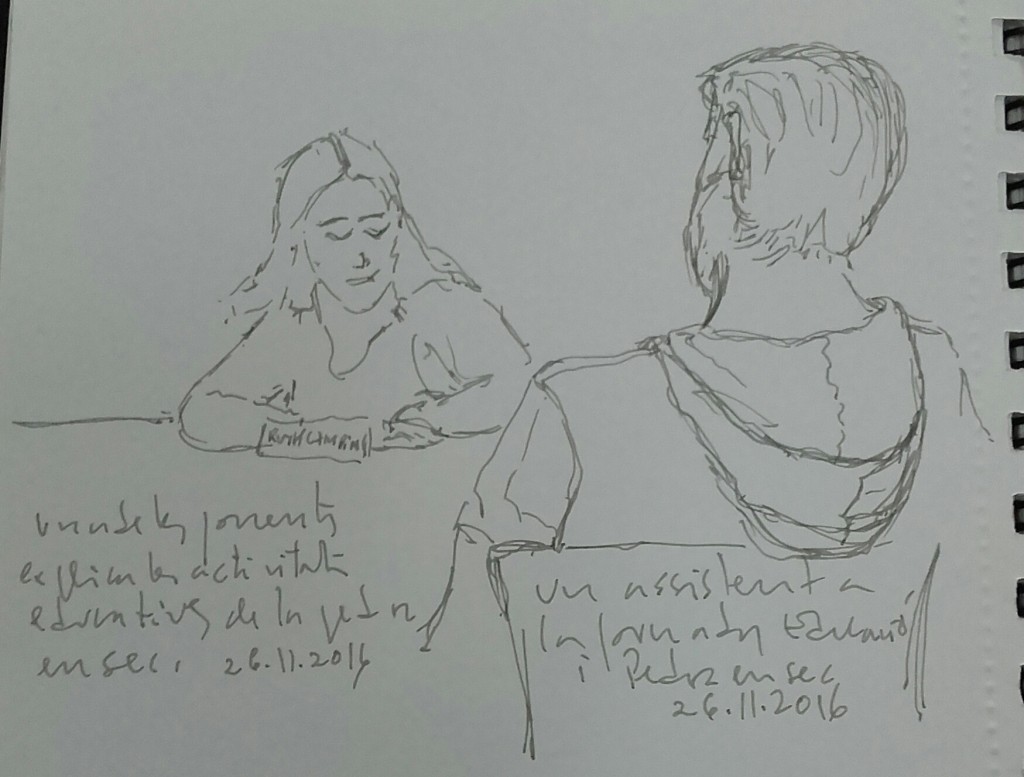 RUTH CAMPINS
una de les ponents
explica les activitats
educatives de la pedra
en sec. 26.11.2016
un assistent a
la jornada, Educació
i Pedra en sec
26.11.2016